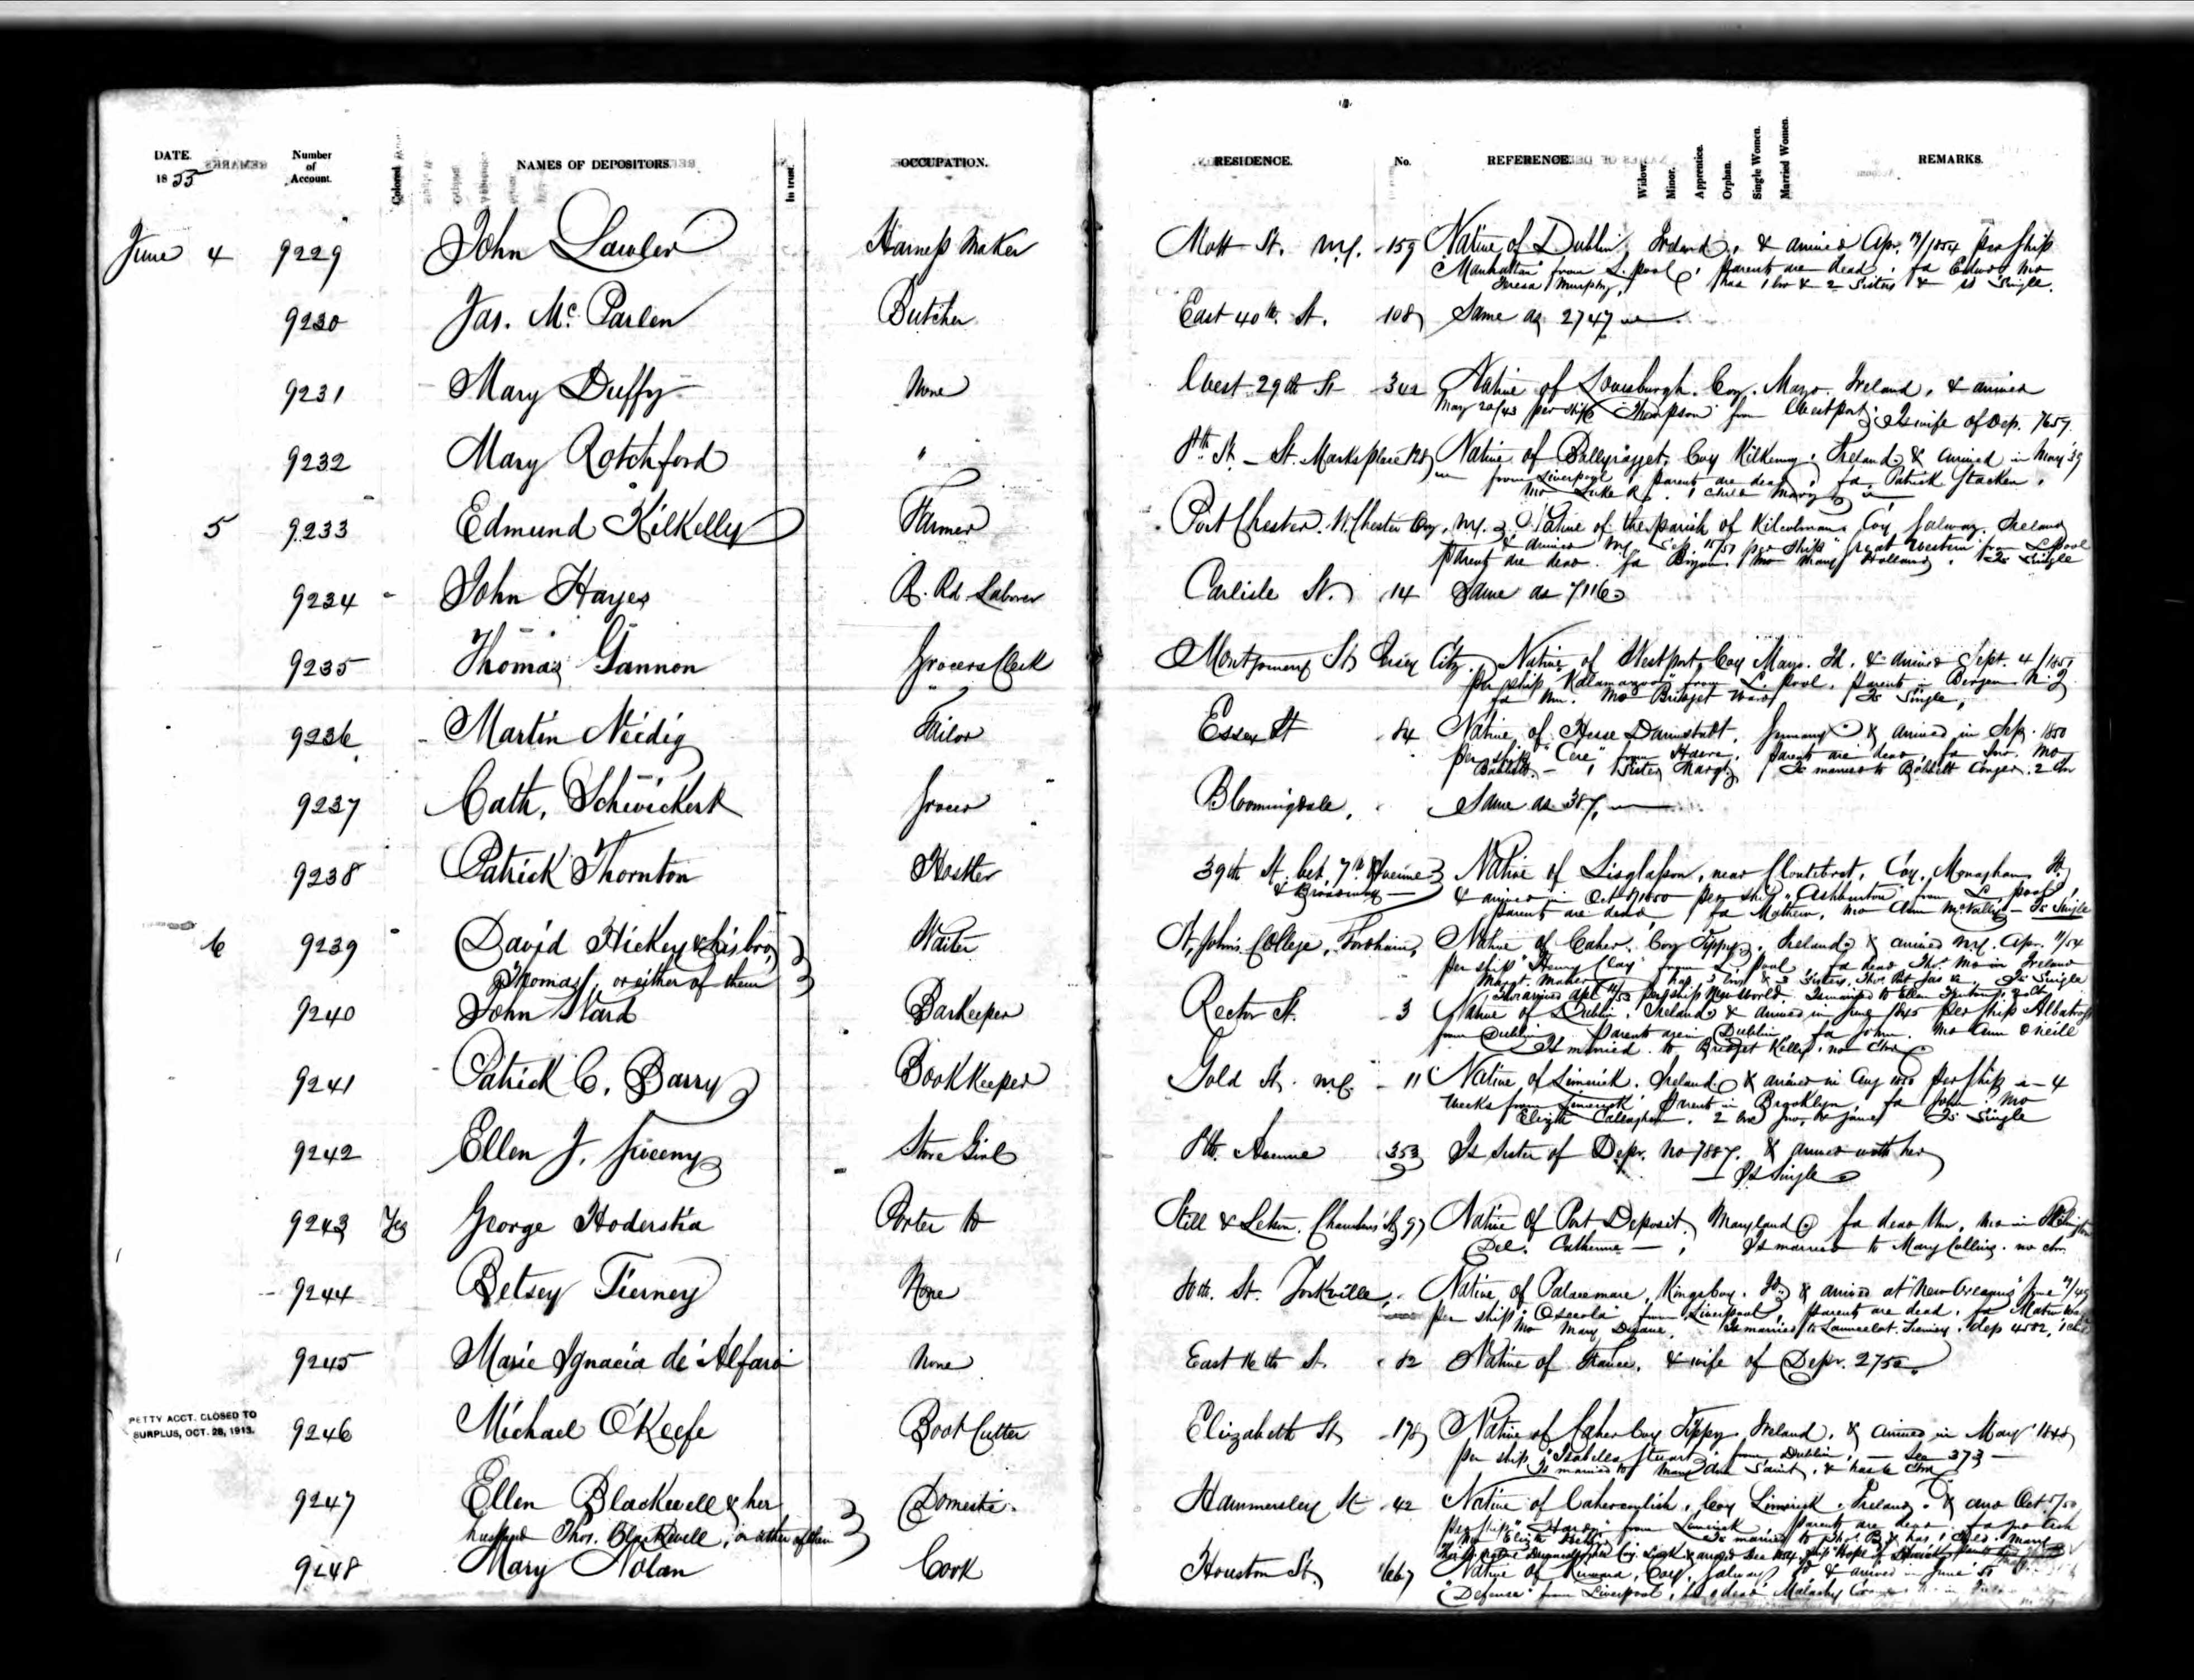 DATE.
1855
Number of Account.
Colored
NAMES OF DEPOSITORS.
In trust.
OCCUPATION.
RESIDENCE.
No.
REFERENCE.
Widow.
Minor.
Apprentice.
Orphan.
Single Women.
Married Women.
REMARKS.
June 4 9229 John Lawler Harness Maker Mott St. N.Y. 159 Native of Dublin, Ireland, & arrived Apr. /1854 per ship
"Manhattan" from L.pool, parents are dead, fa Edwd mo
Teresa Murphy, has 1 bro & 2 Sisters & is Single.
9230 Jas. McParlen Butcher East 40th. St. 108 Same as 2747
9231 Mary Duffy None West 29th St 342 Native of Louisburgh, Coy. Mayo. Ireland, & arrived
May 20/43 per ship Thompson from Westport, Is wife of Dep. 7657.
9232 Mary Rotchford " 8th St. - St. Marks place 128 Native of Ballyragget, Coy Kilkenny, Ireland & arrived in May 39
from Liverpool, parents are dead, fa Patrick Stacken,
mo Luke R. 1 Child Mary
5 9233 Edmund Kilkelly Farmer Port Chester, W. Chester Coy, N.Y. Native of the parish of Kilcolman, Coy Galway. Ireland
& arrived N.Y. Sep. 15/51 per ship "Great Western" from L.pool
Parents are dead. fa Bryan. mo Mary Holland, Is Single
9234 John Hayes R. Rd. Laborer Carlisle St. 14 Same as 7116
9235 Thomas Gannon Grocers Clerk Montgomery St Jersey City. Native of Westport, Coy Mayo. Id. & arrived Sept. 4/1851
per ship "Kalamazoo" from L.pool, parents in Bergen N.J.
fa Wm. mo Bridget Ward Is Single,
9236 Martin Neidig Tailor Essex St 84 Native of Hesse Darmstadt, Germany & arrived in Sep. 1850
per ship from Havre, parents are dead, fa Jno. mo
1 Sister Margt, Is married to Conger. 2 chn
9237 Cath. Schwickert Grocer Bloomingdale, Same as 387,
9238 Patrick Thornton Hostler 39th St. bet. 7th Avenue Native of Lisglasson, near Clontibret, Coy. Monaghan Id,
& Broadway & arrived in Oct 8/1850 per ship "Ashburton" from L.pool,
parents are dead, fa Mathew, mo Ann McNally - Is Single
6 9239 David Hickey & his bro, Waiter St. Johns College, Fordham, Native of Caher. Coy Tippy. Ireland & arrived N.Y. Apr. 11/54
Thomas, or either of them per ship "Henry Clay" from L.pool fa dead Thos. mo in Ireland
Margt. Maher, has 3 bros & 3 Sisters, Thos. Pat Jas & Is Single
Thos arrived Apl 53 per ship New World. Is married to Ellen
9240 John Ward Barkeeper Rector St. 3 Native of Dublin, Ireland & arrived in June 1845 per ship Albatross
from Dublin. Parents are in Dublin, fa John. mo Ann O'Neill
Is married to Bridget Kelly, no chn
9241 Patrick C. Barry Bookkeeper Gold St. N.Y. 11 Native of Limerick, Ireland & arrived in Aug 1850 per ship 4
weeks from Limerick. Parents in Brooklyn, fa John. mo
Elizth Callaghan. 2 bro Jno, & James Is Single
9242 Ellen J. Sweeny Store Girl 8th. Avenue 353 Is Sister of Depr. No 7887. & arrived with her
Is Single
9243 Yes George Hoderstia Porter to Still & Chambers St 97 Native of Port Deposit, Maryland fa dead Wm, mo in Wilmington
Del. Catherine Is married to Mary Collins. no chn.
9244 Betsey Tierney None 80th. St. Yorkville, Native of Palacemare, Kings Coy. Id. & arrived at New Orleans June /49
per ship "Osceola" from Liverpool, parents are dead, fa
mo Mary Is married to Launcelot Tierney, dep 4582, 1 child
9245 Marie Ignacia de Alfaro None East 16th St. 82 Native of France, & wife of Depr. 2752.
PETTY ACCT. CLOSED TO
SURPLUS, OCT. 28, 1913.
9246 Michael O'Keefe Boot Cutter Elizabeth St 178 Native of Caher Coy Tippy Ireland, & arrived in May 1848
per ship "Isabella Stuart" from Dublin, - See 373 -
Is married to Mary Ann Saint, & has 6 chn
9247 Ellen Blackwell & her Domestic Hammersley St 42 Native of Caherconlish, Coy Limerick, Ireland, & arrd Oct 5/50
husband Thos. Blackwell, or either of them per ship from Limerick parents are dead fa Jno Ash
mo Eliza Is married to Thos. B & has 1 child. Mary
9248 Mary Nolan Cook Houston St. 667 Native of Coy. Galway Id & arrived in June 51
"Defence" from Liverpool, fa dead Malachy